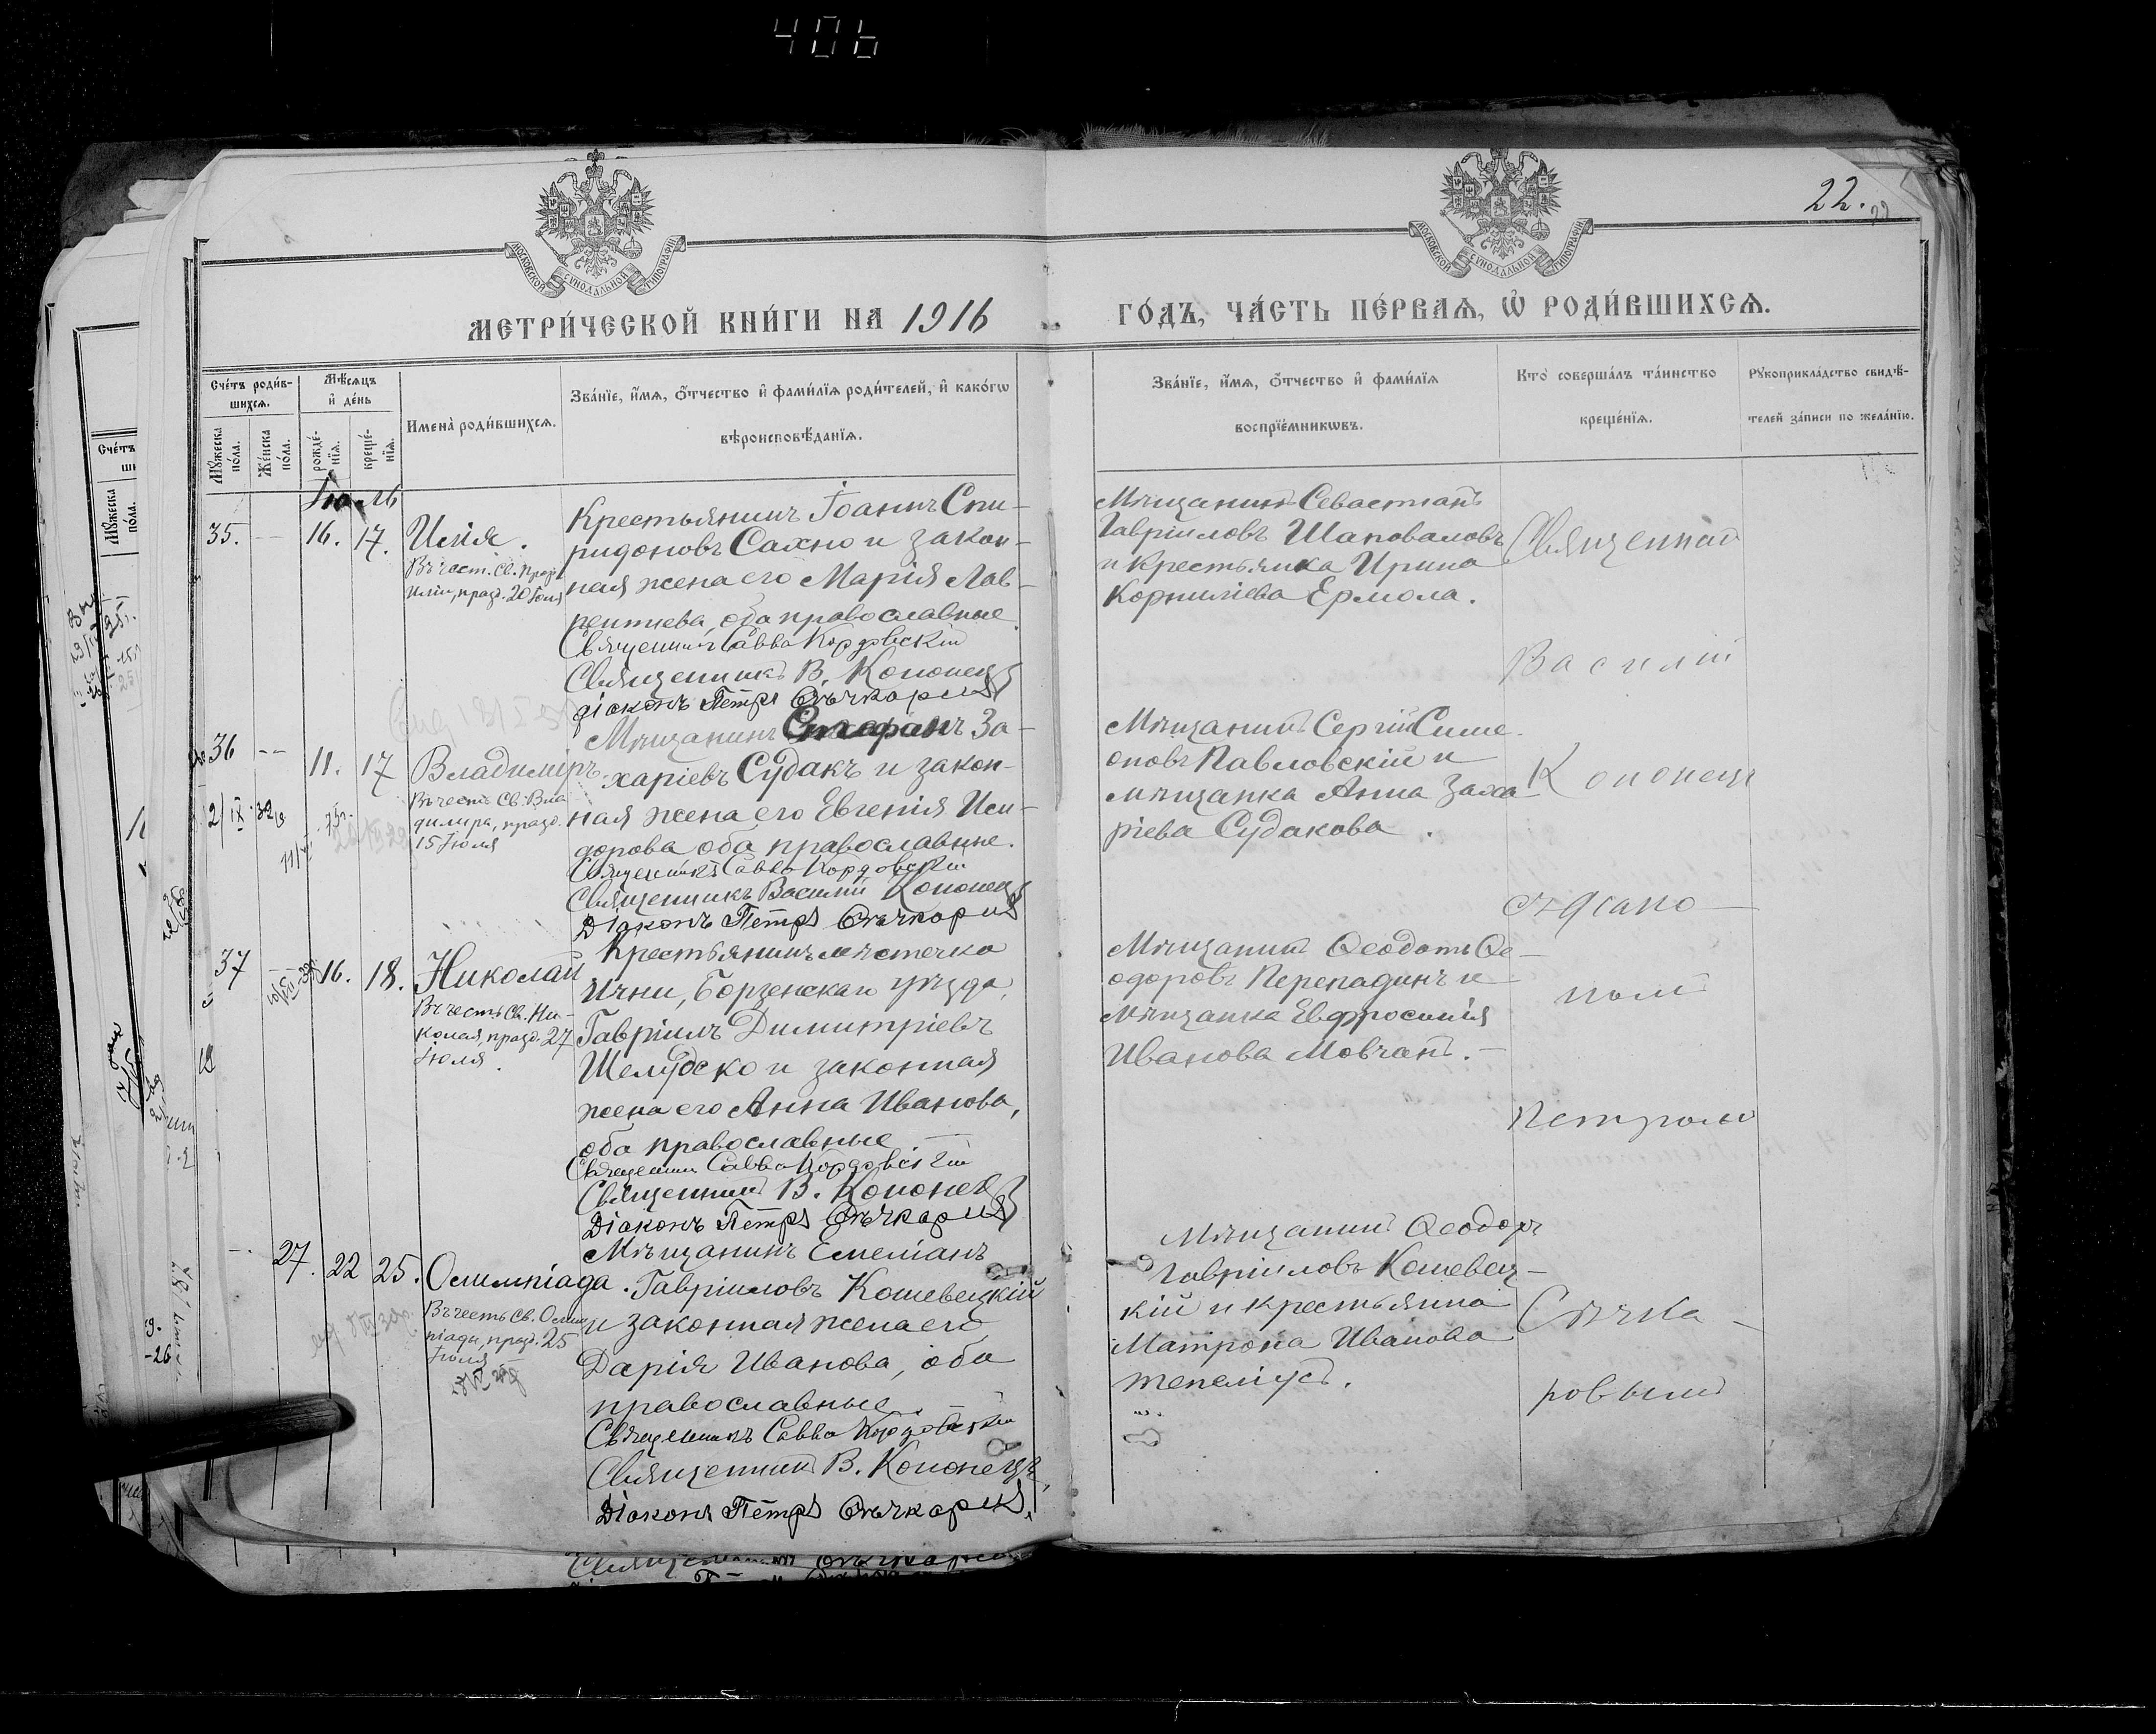 406
22.
МОСКОВСКОЙ СѴНОДАЛЬНОЙ ТИПОГРАФІИ
МОСКОВСКОЙ СѴНОДАЛЬНОЙ ТИПОГРАФІИ
МЕТРИ́ЧЕСКОЙ КНИ́ГИ НА 1916
ГО́ДЪ, ЧА́СТЬ ПЕ́РВАѦ, Ѡ҆ РОДИ́ВШИХСѦ.
Сче́тъ роди́в-
шихсѧ.
Мѣ́сѧцъ
и҆ де́нь
Имена̀ роди́вшихсѧ.
Зва́нїе, и҆́мѧ, ѻ҆́тчество и҆ фами́лїѧ роди́телей, и҆ како́гѡ
вѣроисповѣ́данїѧ.
Мꙋ́жеска
по́ла.
Же́нска
по́ла.
рожде́-
нїѧ.
креще́-
нїѧ.
Зва́нїе, и҆́мѧ, ѻ҆́тчество и҆ фами́лїѧ
воспрїе́мникѡвъ.
Кто̀ соверша́лъ та́инство
креще́нїѧ.
Рꙋкоприкла́дство свидѣ́-
телей за́писи по жела́нїю.
Іюль
35. — 16. 17. Илія.
Въ чест. св. прор.
Иліи, празд. 20 Іюля
Крестьянинъ Іоаннъ Спи-
ридоновъ Сахно и закон-
ная жена его Марія Лав-
рентиева, оба православные
Священникъ Савва Кордовскій
Священникъ В. Кононецъ
Діаконъ Петръ Овъчкаръ
Мѣщанинъ Севастіанъ
Гавріиловъ Шаповаловъ
и крестьянка Ирина
Корниліева Ермола.
36 — 11. 17 Владиміръ.
Въ честь Св. Вла
диміра, празд.
15 Іюля
Мѣщанинъ Стефанъ За-
харіевъ Судакъ и закон-
ная жена его Евгенія Иси-
дорова оба православные.
Священникъ Савва Кордовскій
Священникъ Василій Кононецъ
Діаконъ Петръ
Мѣщанинъ Сергій Симе-
оновъ Павловскій и
мѣщанка Анна Заха-
ріева Судакова.
37 16. 18. Николай
Въ честь Св. Ни-
колая, празд. 27
Іюля.
Крестьянинъ мѣстечка
Ични, Борзенскаго уѣзда,
Гавріилъ Димитріевъ
Шелудско и законная
жена его Анна Иванова,
оба православные. —
Священникъ Савва Кордовскій
Священникъ В. Кононецъ
Діаконъ Петръ
Мѣщанинъ Ѳеодотъ Ѳе-
одоровъ Перепадинъ и
мѣщанка Евфросинія
Иванова Мовчанъ. —
27. 22 25. Олимпіада.
Въ честь Св. Олим
піады, празд. 25
Іюля
Мѣщанинъ Емеліанъ
Гавріиловъ Кошевецкій
и законная жена его
Дарія Иванова, оба
православные. —
Священникъ Савва Кордовскій
Священникъ В. Кононецъ,
Діаконъ Петръ
Мѣщанинъ Ѳеодоръ
Гавріиловъ Кошевец-
кій и крестьянка
Матрона Иванова
Священникъ
Василій
Кононецъ
съ діако-
номъ
Петромъ